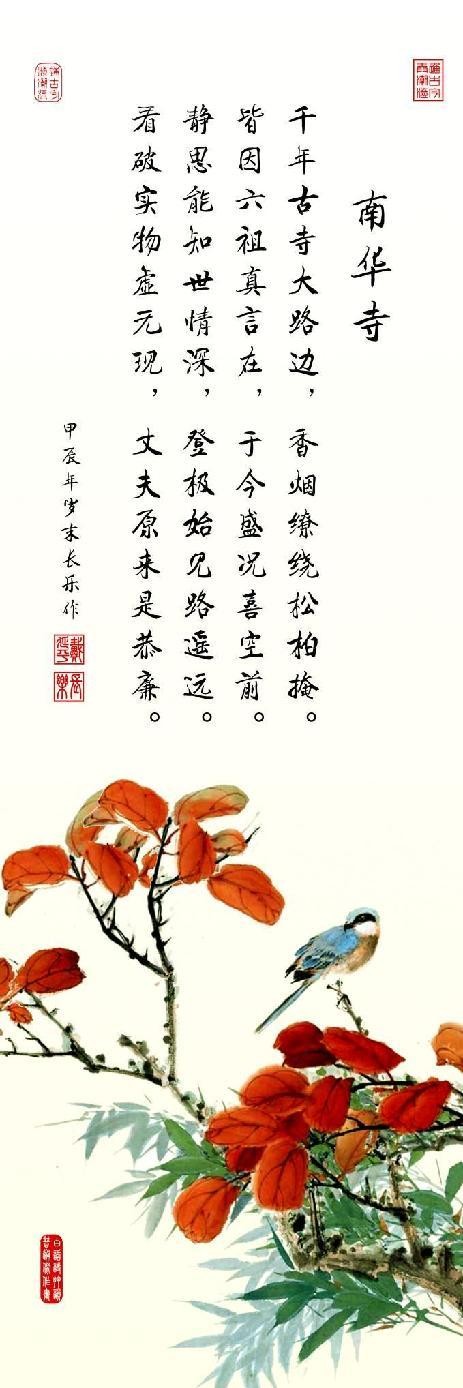 南华寺
千年古寺大路边，香烟缭绕松柏掩。
皆因六祖真言在，于今盛况喜空前。
静思能知世情深，登极始见路遥远。
看破实物虚元现，丈夫原来是恭廉。
甲辰年岁末长乐作